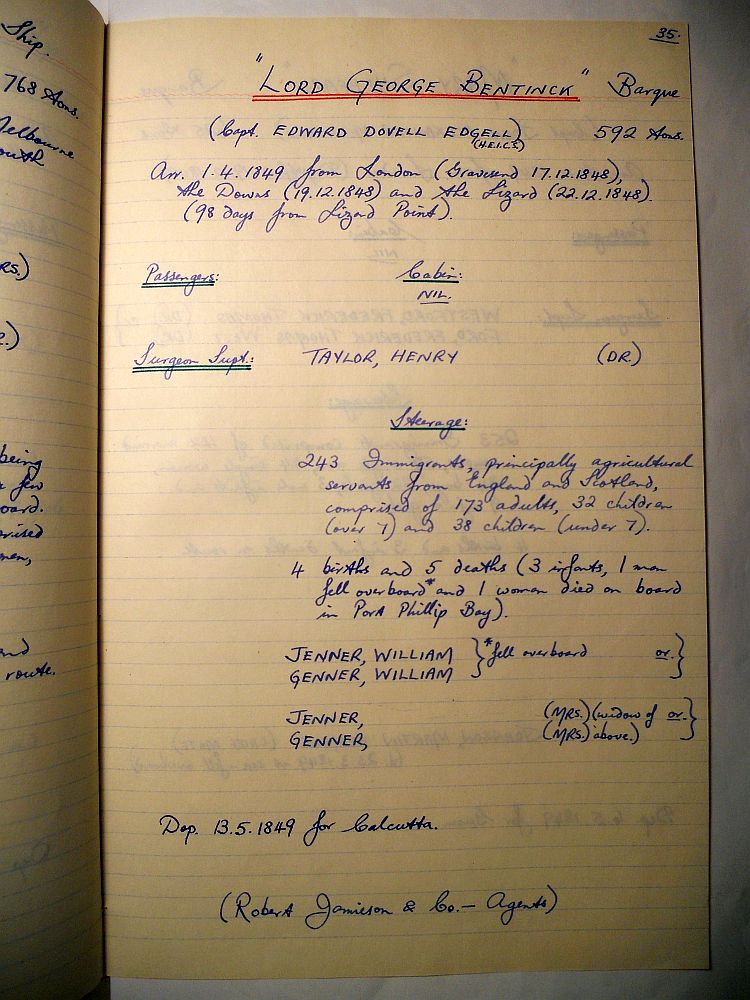 Ship.
768 tons.
Melbourne
RS.)
being
few
board.
men,
route.
35.
"LORD GEORGE BENTINCK" Barque
(Capt. EDWARD DOVELL EDGELL) 592 tons.
(H.E.I.C.S.)
Arr. 1.4.1849 from London (Gravesend 17.12.1848),
the Downs (19.12.1848) and the Lizard (22.12.1848).
(98 days from Lizard Point).
Passengers: Cabin:
NIL.
Surgeon Supt.: TAYLOR, HENRY (DR.)
Steerage:
243 Immigrants, principally agricultural
servants from England and Scotland,
comprised of 173 adults, 32 children
(over 7) and 38 children (under 7).
4 births and 5 deaths (3 infants, 1 man
fell overboard* and 1 woman died on board
in Port Phillip Bay).
JENNER, WILLIAM } *fell overboard or. }
GENNER, WILLIAM
JENNER, (MRS.) (widow of or. }
GENNER, (MRS.) above.)
Dep. 13.5.1849 for Calcutta.
(Robert Jamieson & Co. — Agents)